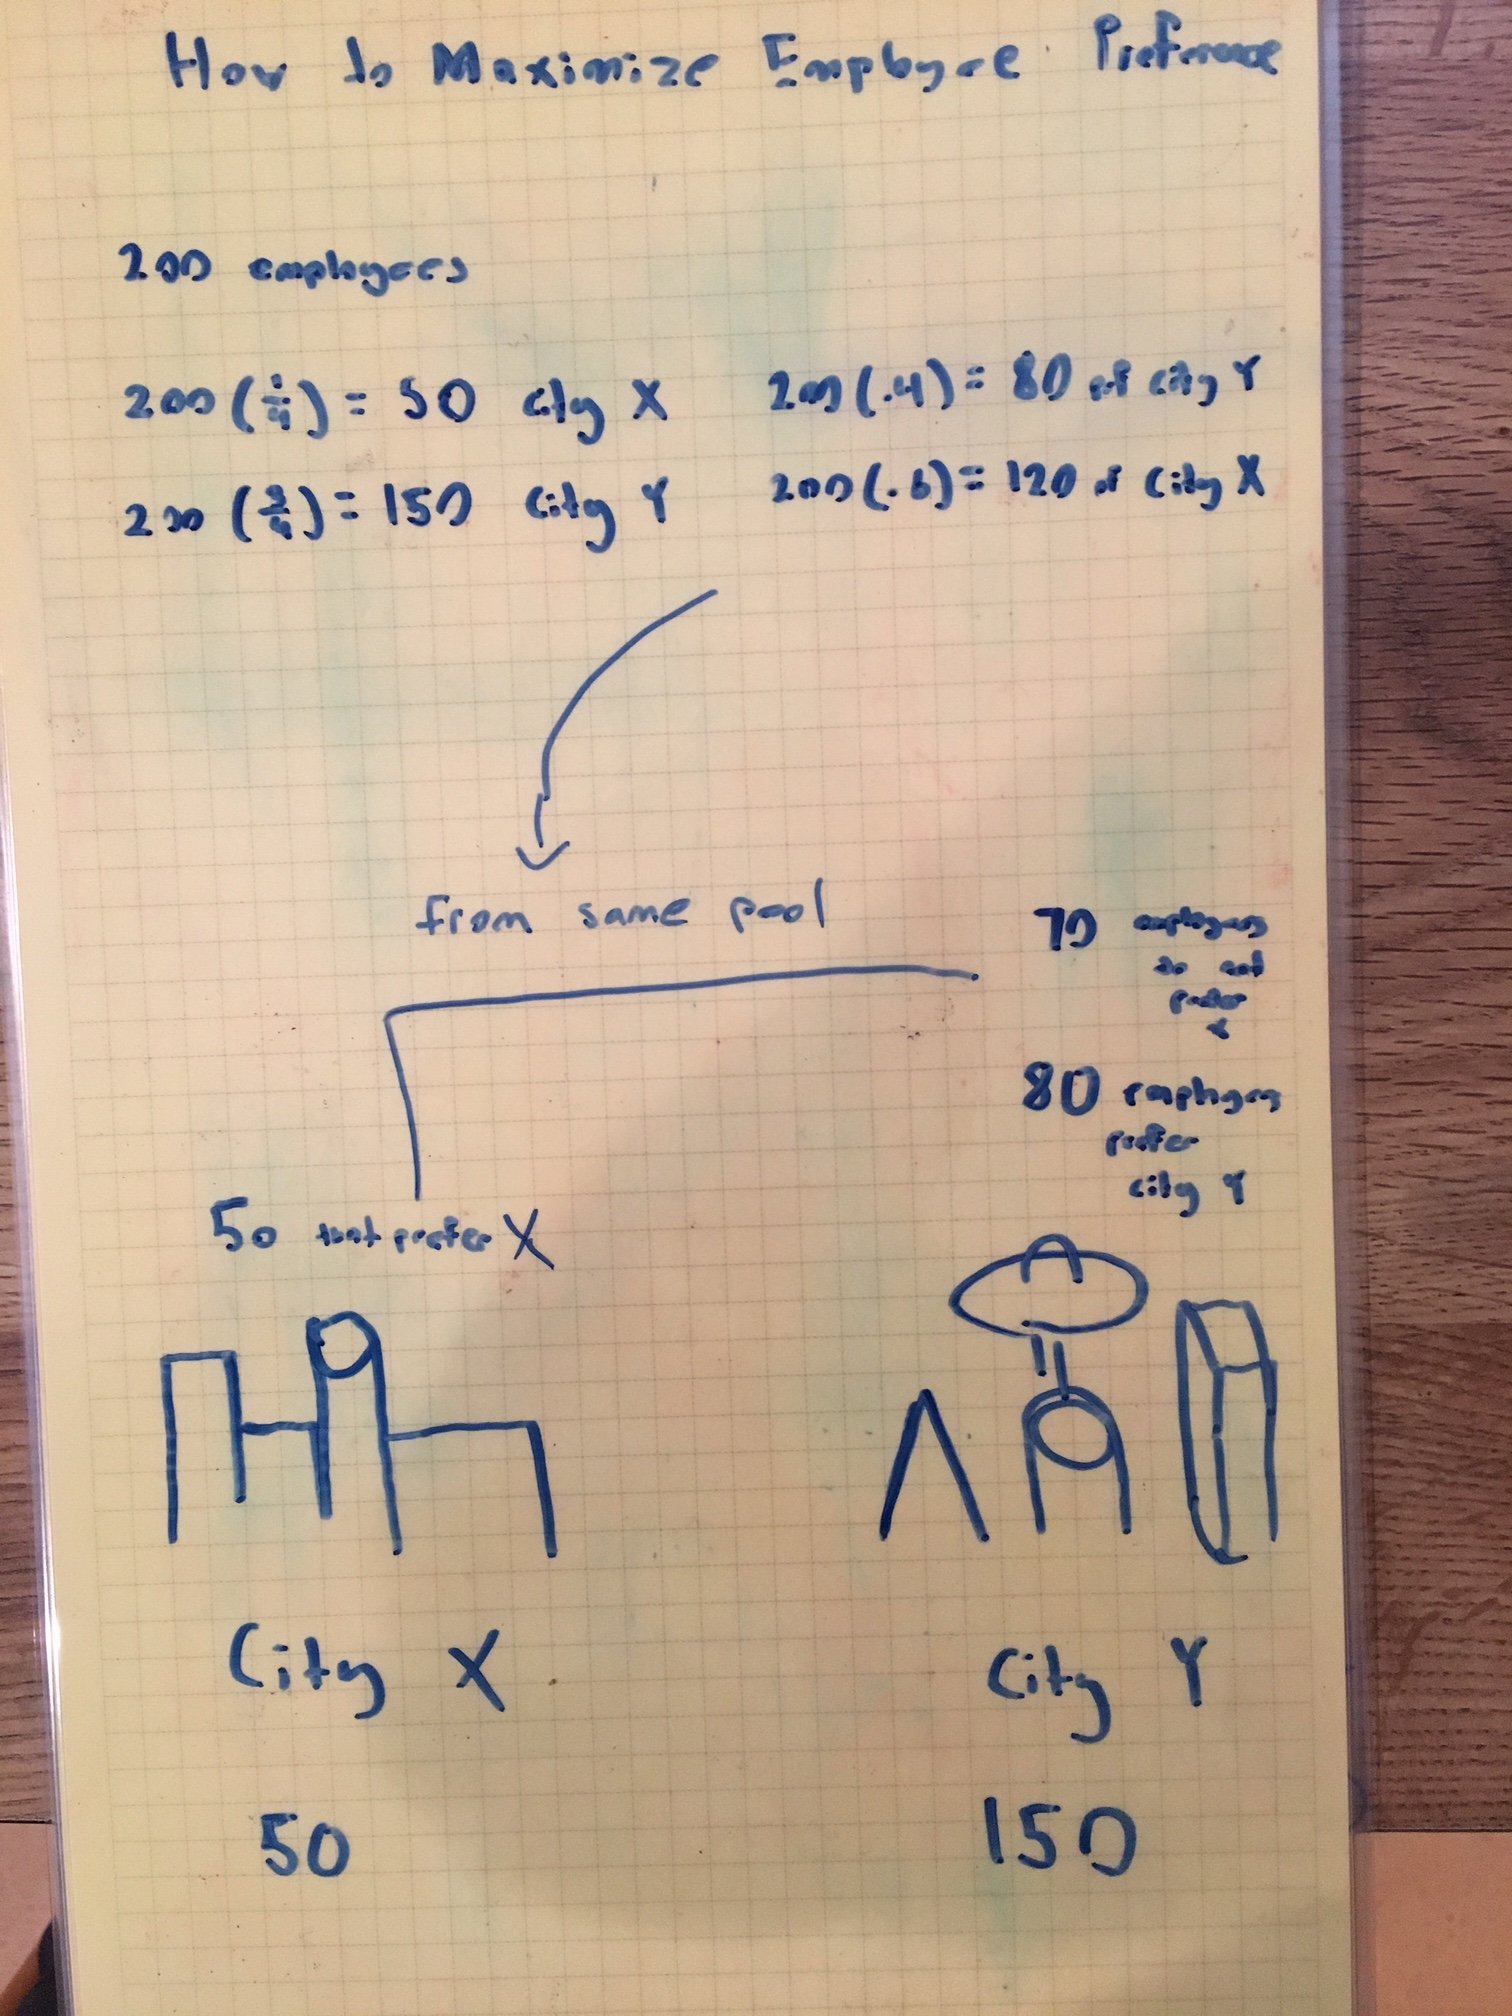 How to Maximize Employee Preference
200 employees
200 (1/4) = 50 city X
200 (3/4) = 150 city Y
200 (.4) = 80 of city Y
200 (.6) = 120 of city X
from same pool
70 employees
do not
prefer
Y
80 employees
prefer
city Y
50 that prefer X
City X
City Y
50
150